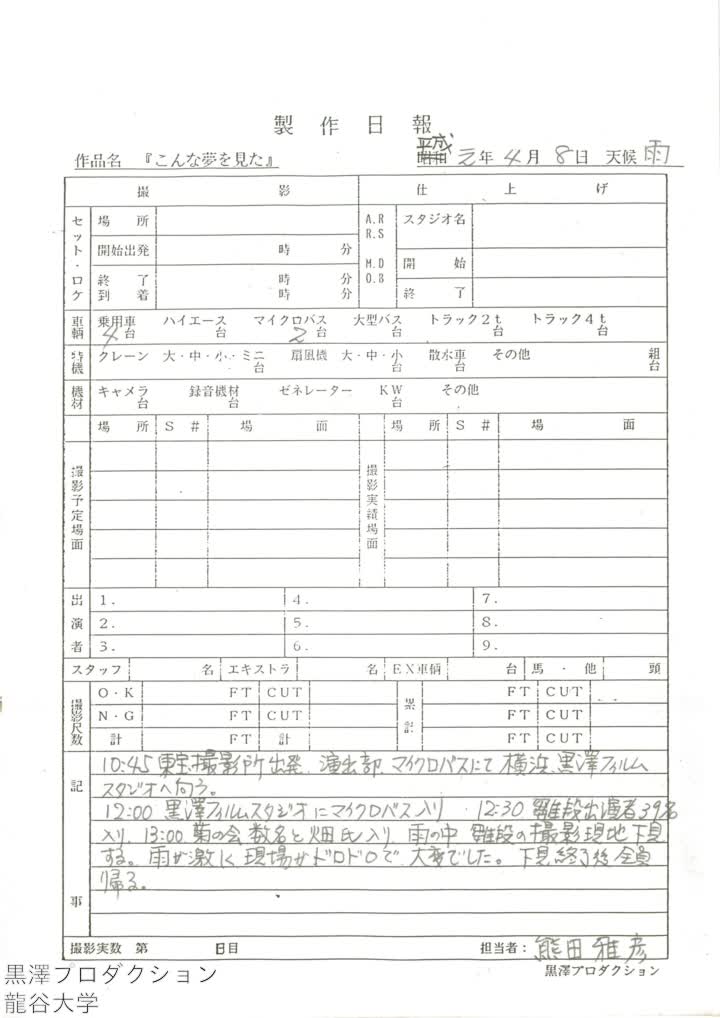 製作日報
作品名 『こんな夢を見た』 昭和 平成 元年 4月 8日 天候 雨
撮影 仕上げ
セット・ロケ 場所 A.R R.S スタジオ名
開始出発 時 分 M.D O.B 開始
終了 時 分 終了
到着 時 分
車輌 乗用車 4台 ハイエース 台 マイクロバス 2台 大型バス 台 トラック2t 台 トラック4t 台
特機 クレーン 大・中・小・ミニ 台 扇風機 大・中・小 台 散水車 台 その他 組 台
機材 キャメラ 台 録音機材 台 ゼネレーター KW 台 その他
場所 S# 場面 場所 S# 場面
撮影予定場面 撮影実績場面
出演者 1. 4. 7.
2. 5. 8.
3. 6. 9.
スタッフ 名 エキストラ 名 EX車輌 台 馬・他 頭
撮影尺数 O・K FT CUT 累計 FT CUT
N・G FT CUT FT CUT
計 FT 計 FT CUT
記事
10:45 東宝撮影所出発 演出部 マイクロバスにて横浜、黒澤フィルム
スタジオへ向う。
12:00 黒澤フィルムスタジオにマイクロバス入り ・12:30 雛段出演者39名
入り、13:00 菊の会数名と畑氏入り、雨の中 雛段の撮影現地下見
する。雨が激しく現場がドロドロで、大変でした。下見終了後全員
帰る。
撮影実数 第 日目 担当者: 熊田雅彦
黒澤プロダクション
黒澤プロダクション
龍谷大学